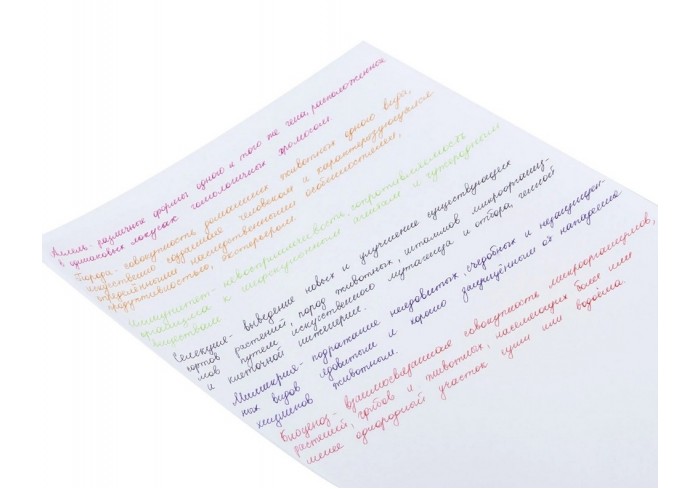 Аллель - различные формы одного и того же гена, расположенные
в одинаковых локусах гомологичных хромосом.
Порода - совокупность домашних животных одного вида,
искусственно созданная человеком и характеризующаяся
определёнными наследственными особенностями,
продуктивностью, экстерьером.
Иммунитет - невосприимчивость, сопротивляемость
организма к инфекционным агентам и чужеродным
веществам.
Селекция - выведение новых и улучшение существующих
сортов растений, пород животных, штаммов микроорганиз-
мов путём искусственного мутагенеза и отбора, генной
и клеточной инженерии.
Мимикрия - подражание неядовитых, съедобных и незащищён-
ных видов ядовитым и хорошо защищённым от нападения
хищников животным.
Биоценоз - взаимосвязанная совокупность микроорганизмов,
растений, грибов и животных, населяющих более или
менее однородный участок суши или водоёма.